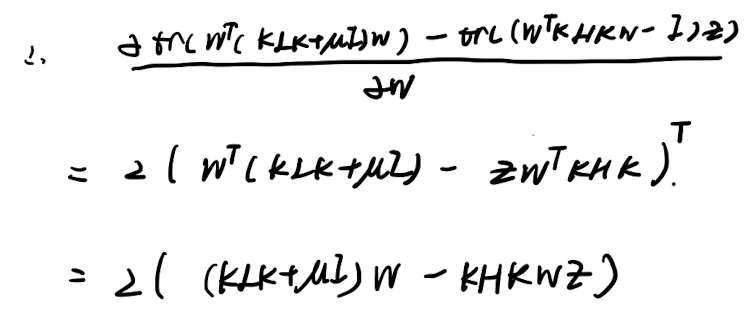 ∴ ∂ tr(Wᵀ(KLK+μI)W) − tr((WᵀKHKW−I)Z)
∂W
= 2 ( Wᵀ(KLK+μI) − ZWᵀKHK )ᵀ.
= 2 ( (KLK+μI)W − KHKWZ )